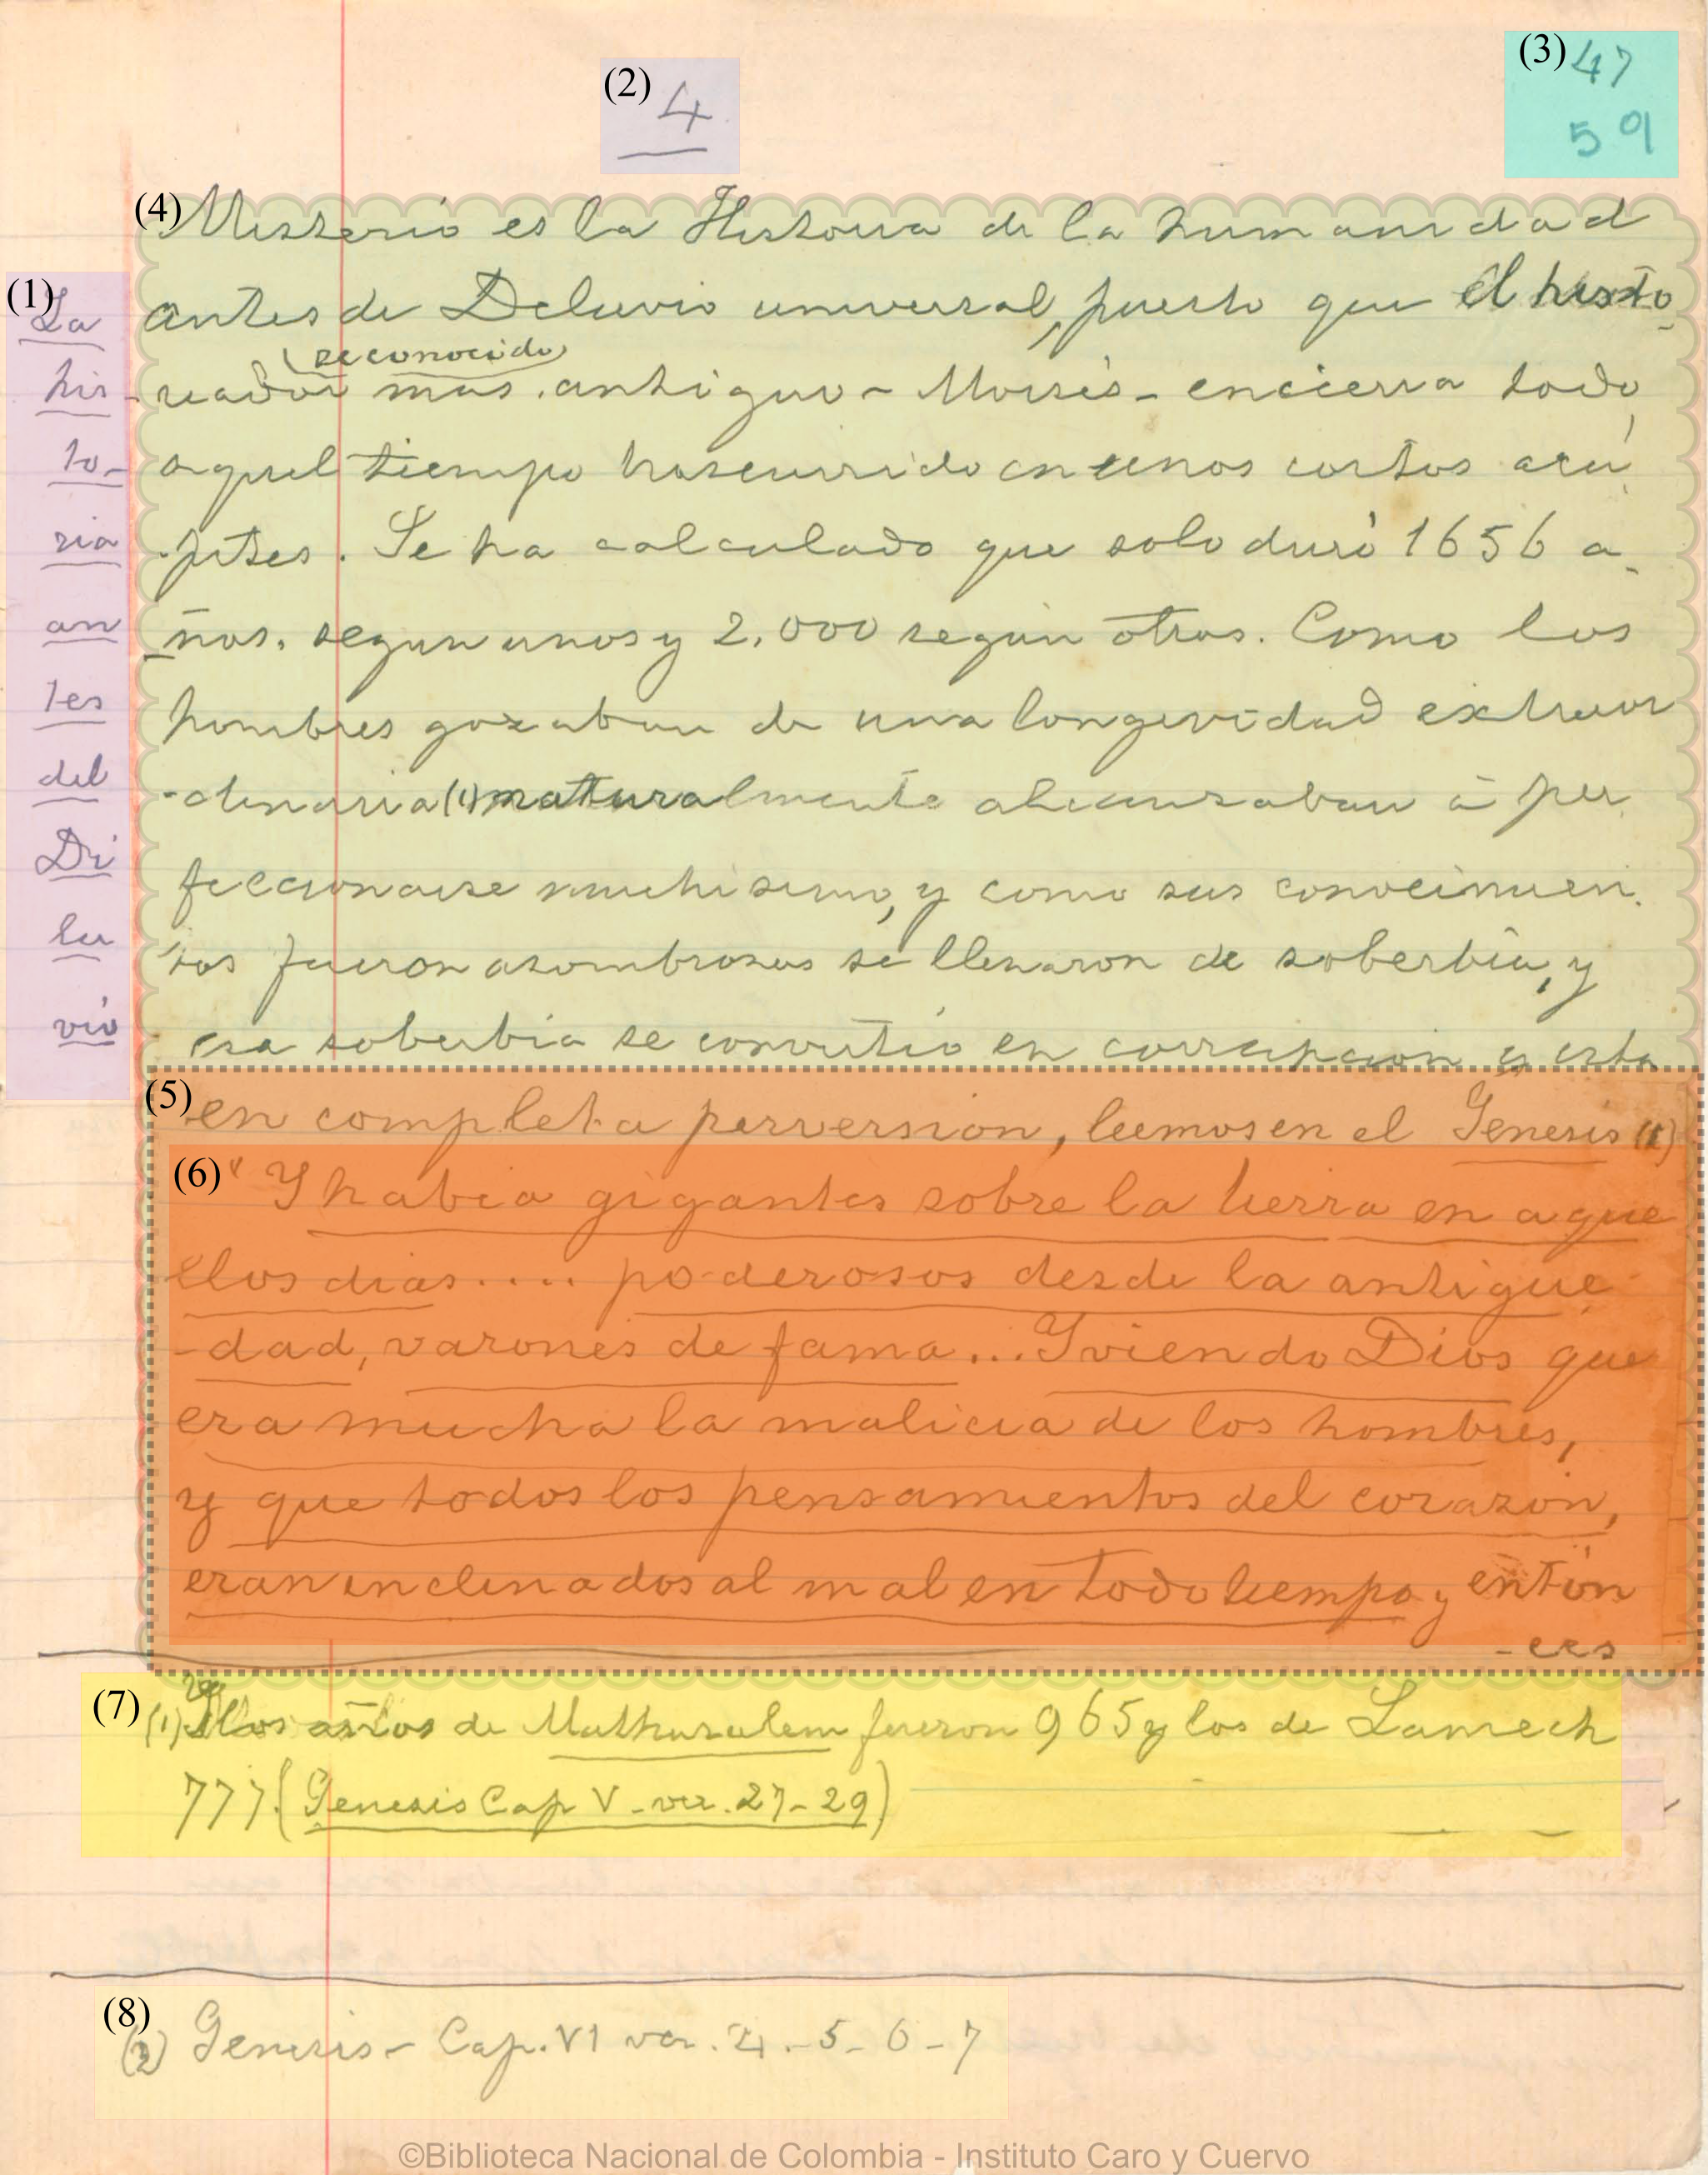 (2) 4
(3) 47
59
(1) La
his
to-
ria
an
tes
del
Di
lu
vio
(4) Misterio es la Historia de la humanidad
antes de Deluvio universal, puesto que el histo-
(reconocido)
riador mas antiguo - Moisés - encierra todo
aquel tiempo trascurrido en unos cortos acá
pites. Se ha calculado que solo duró 1656 a-
ños. segun unos y 2.000 según otros. Como los
hombres gozaban de una longevidad extraor
-dinaria (1) naturalmente alcanzaban á per
feccionarse muchisimo, y como sus conocimien
tos fueron asombrosos se llenaron de soberbia, y
esa soberbia se convirtió en corrupcion y esta
(5) en completa perversion, leemos en el Genesis
(6) "Y habia gigantes sobre la tierra en aque
llos dias.... poderosos desde la antigue
-dad, varones de fama... Y viendo Dios que
era mucha la malicia de los hombres,
y que todos los pensamientos del corazón,
eran inclinados al mal en todo tiempo, entón
-ces
(7) (1) los años de Mathusalem fueron 965 y los de Lamech
777. (Genesis Cap V - ver. 27-29)
(8) (2) Genesis - Cap. VI ver. 4.-5-6-7
©Biblioteca Nacional de Colombia - Instituto Caro y Cuervo